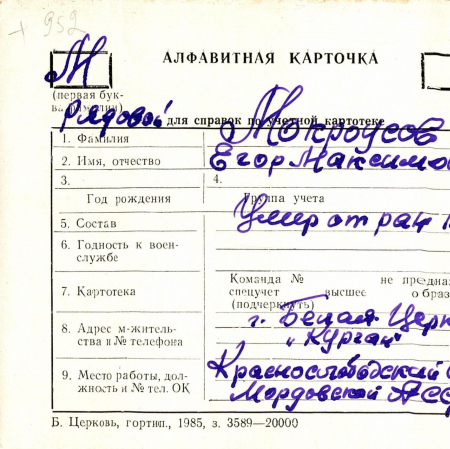 + 952
АЛФАВИТНАЯ КАРТОЧКА
М
(первая бук-
ва фамилии)
Рядовой
для справок по учетной картотеке
1. Фамилия Мокроусов
2. Имя, отчество Егор Максимо
3. 4.
Год рождения Группа учета
5. Состав Умер от ран
6. Годность к воен-
службе
7. Картотека Команда № не предна
спецучет высшее образ
(подчеркнуть)
8. Адрес м-житель-
ства и № телефона г. Белая Церк
"Курган"
9. Место работы, дол-
жность и № тел. ОК Краснослободский
Мордовской АСС
Б. Церковь, гортип., 1985, з. 3589—20000